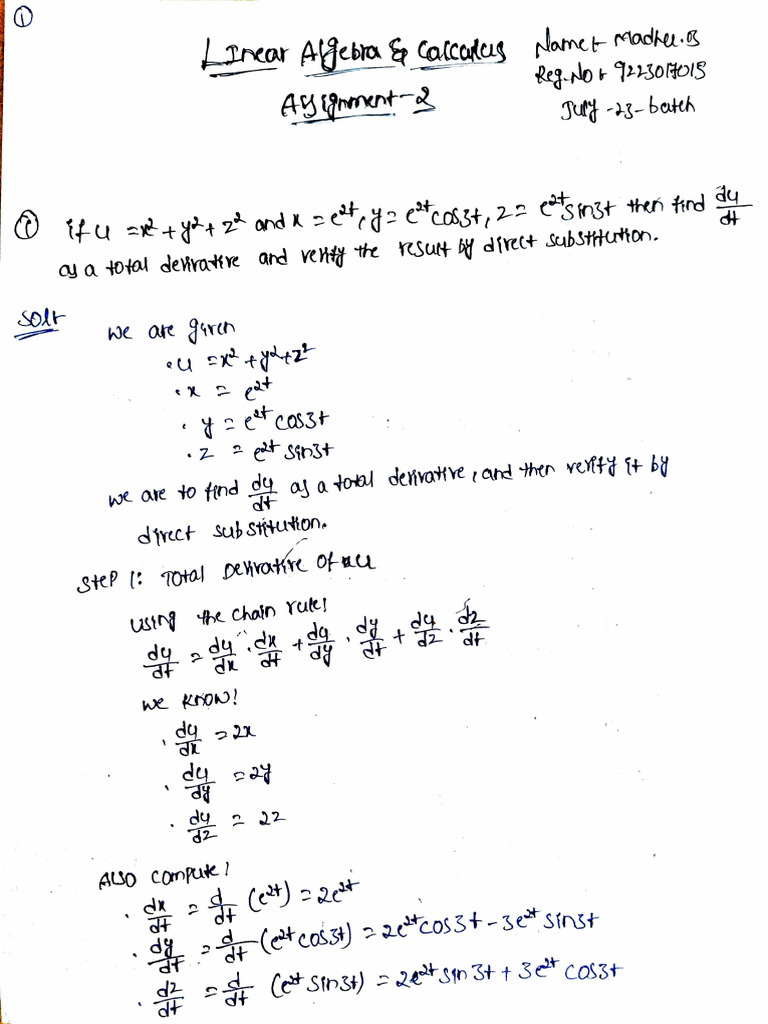 ①
Linear Algebra & Calculus
Assignment-2
Name:- Madhu.B
Reg.No: 9223017015
July-23-batch
① if u = x² + y² + z² and x = e^2t, y = e^2t cos3t, z = e^2t sin3t then find du/dt
as a total derivative and verify the result by direct substitution.
Sol:-
we are given
• u = x² + y² + z²
• x = e^2t
• y = e^2t cos3t
• z = e^2t sin3t
we are to find du/dt as a total derivative, and then verify it by
direct substitution.
Step 1: Total Derivative of u
using the chain rule:
du/dt = du/dx · dx/dt + du/dy · dy/dt + du/dz · dz/dt
we know:
• du/dx = 2x
• du/dy = 2y
• du/dz = 2z
Also compute:
• dx/dt = d/dt (e^2t) = 2e^2t
• dy/dt = d/dt (e^2t cos3t) = 2e^2t cos3t - 3e^2t sin3t
• dz/dt = d/dt (e^2t sin3t) = 2e^2t sin3t + 3e^2t cos3t